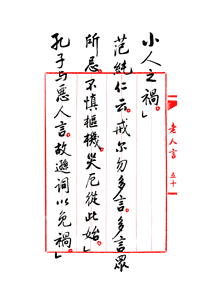 小人之禍。」
范純仁云。戒尔勿多言。多言眾
所忌。不慎樞機。災厄從此始。」
孔子与惡人言。故遜詞以免禍。」
老人言
五十